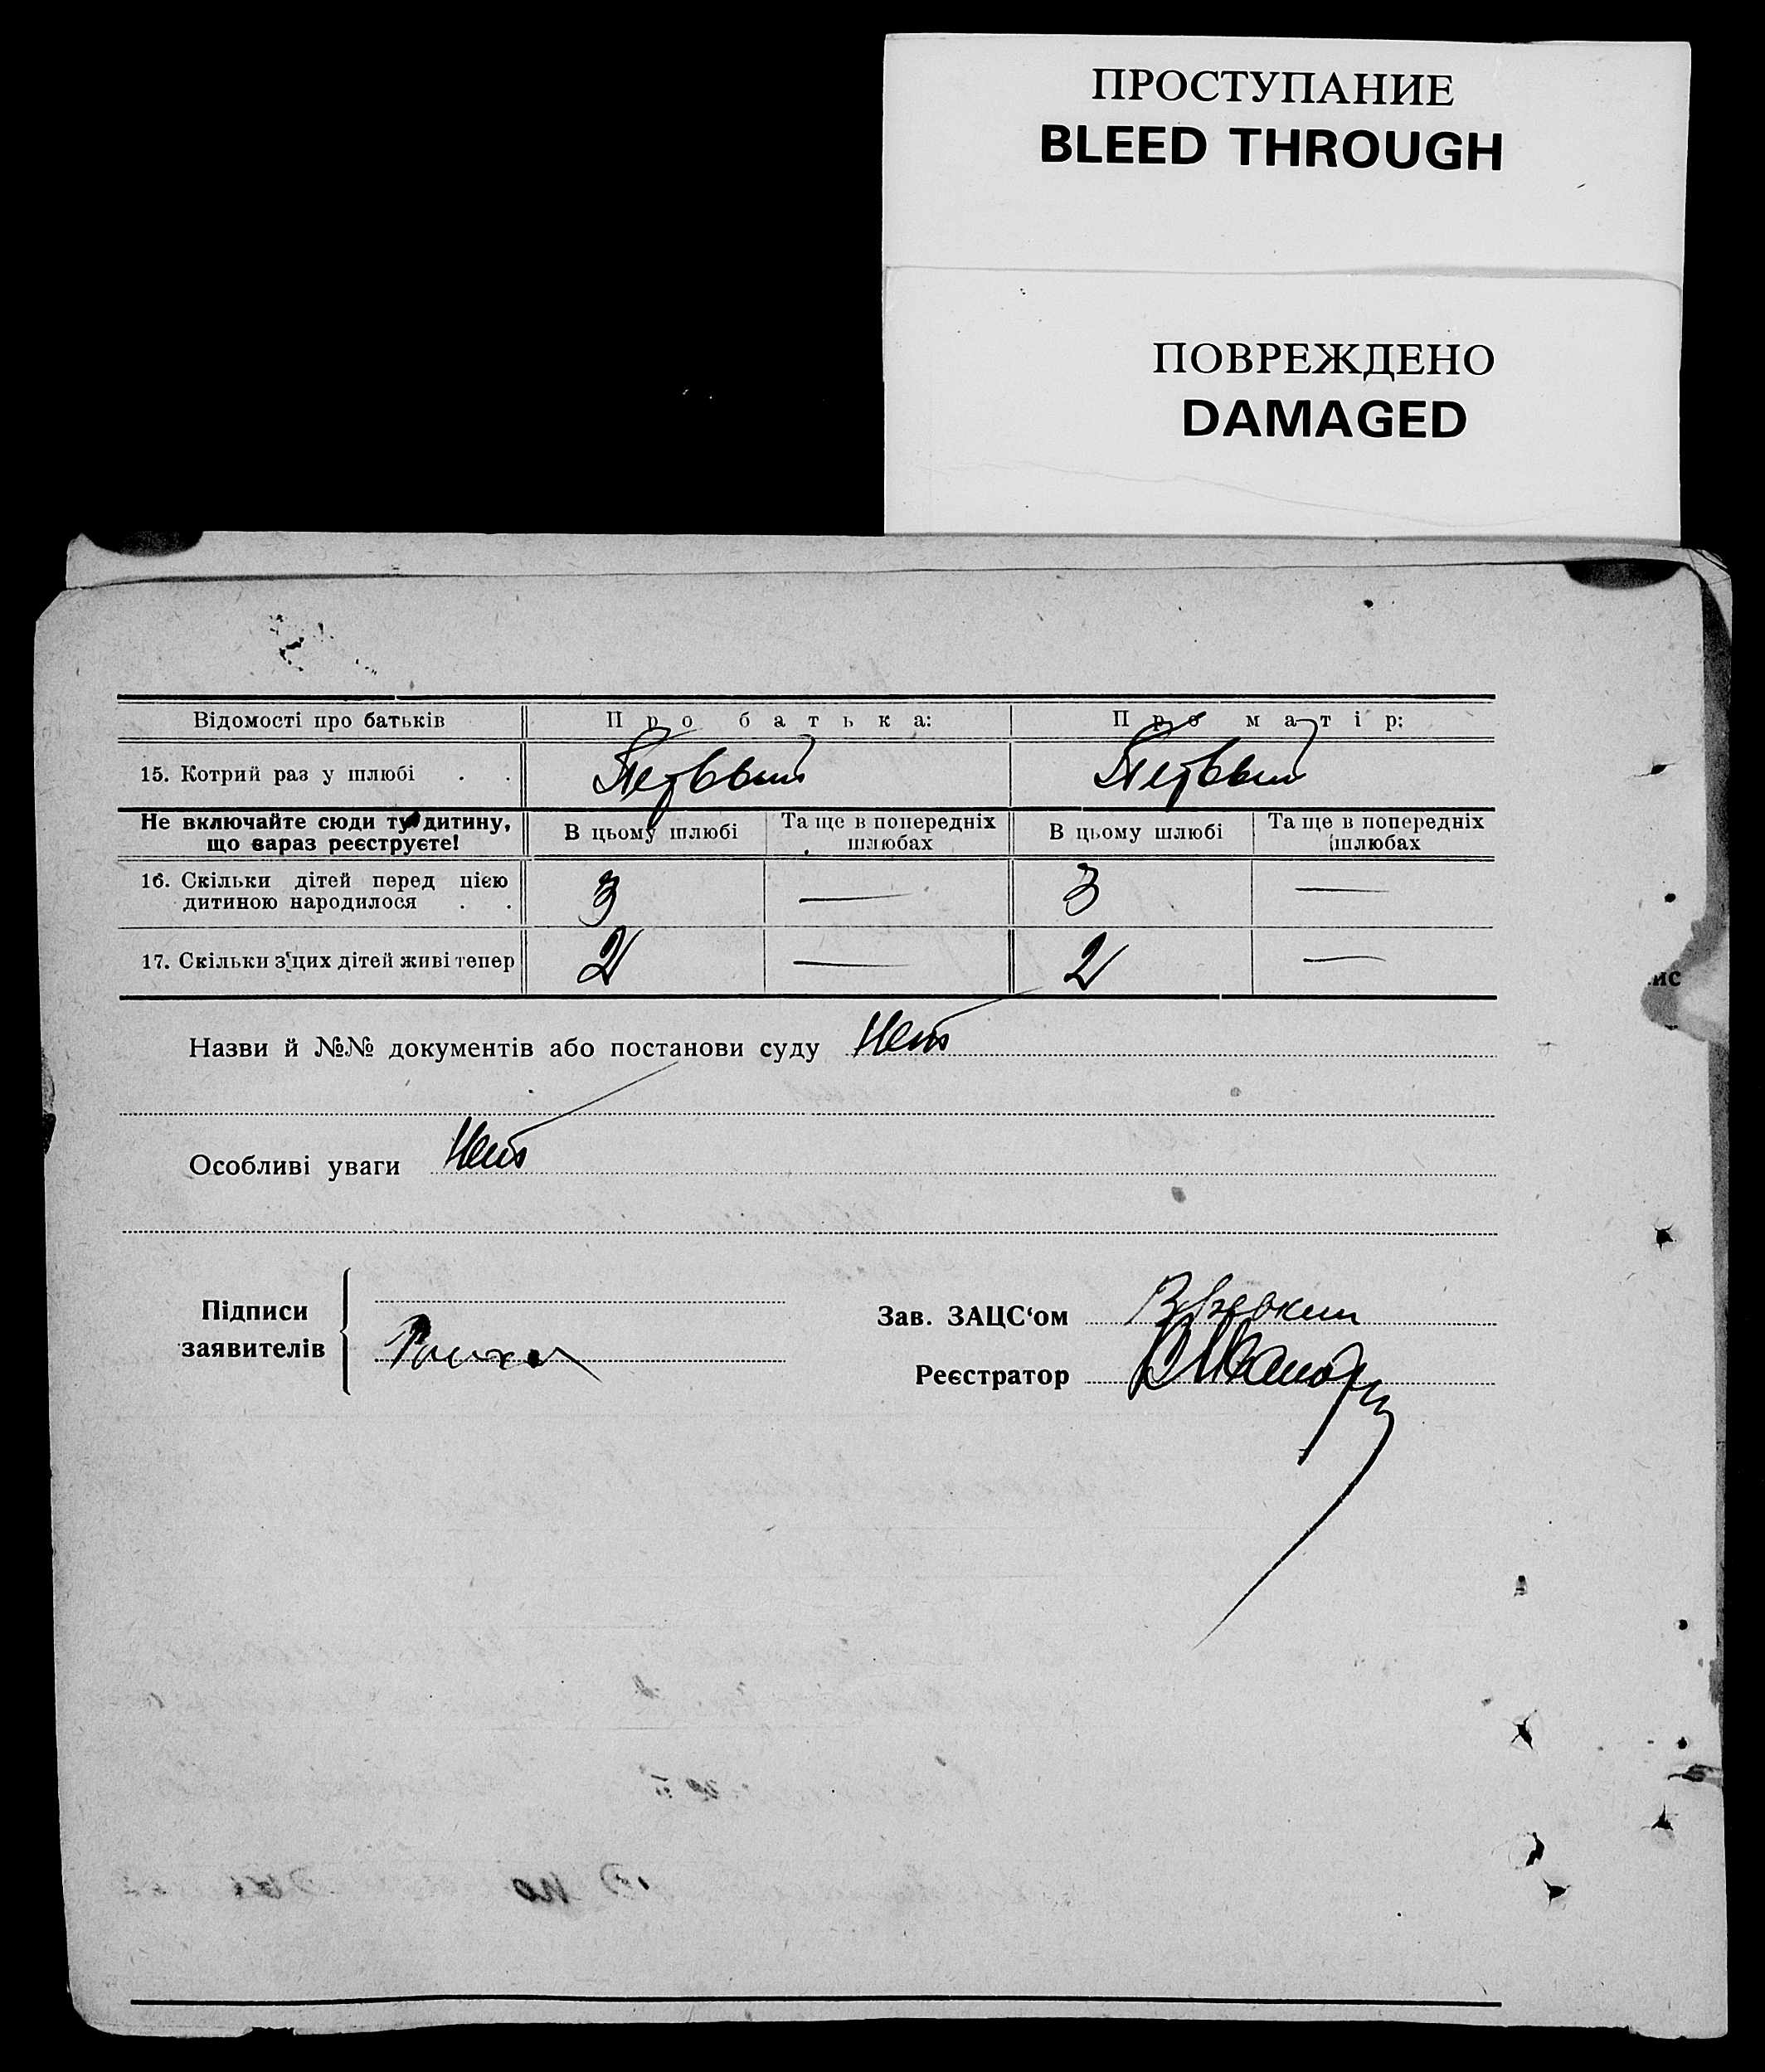 ПРОСТУПАНИЕ
BLEED THROUGH
ПОВРЕЖДЕНО
DAMAGED
Відомості про батьків Про батька: Про матір:
15. Котрий раз у шлюбі . . Первый Первый
Не включайте сюди ту дитину, що вараз реєструєте! В цьому шлюбі Та ще в попередніх шлюбах В цьому шлюбі Та ще в попередніх шлюбах
16. Скільки дітей перед цією дитиною народилося . . 3 — 3 —
17. Скільки з цих дітей живі тепер 2 — 2 —
ис
Назви й №№ документів або постанови суду Нет
Особливі уваги Нет
Підписи заявителів
Зав. ЗАЦС‘ом
Реєстратор